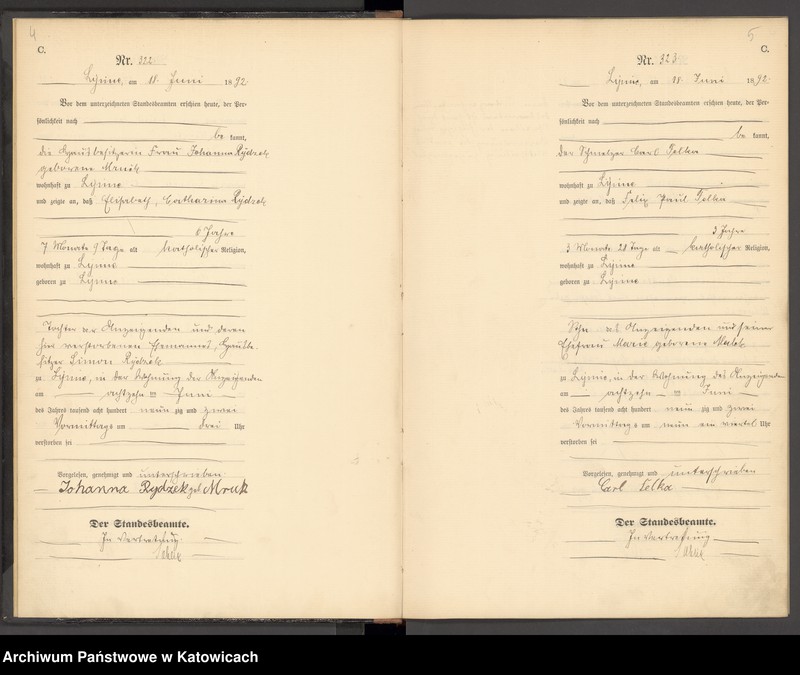 4
C.
Nr. 322.
am 18. Juni 1892.
Vor dem unterzeichneten Standesbeamten erschien heute, der Per-
sönlichkeit nach
be kannt,
die Hausbesitzerin Frau Johanna Rydzek
geborene Mruk
wohnhaft zu
und zeigte an, daß Elisabeth, Catharina Rydzek
6 Jahre
7 Monate 9 Tage alt katholischer Religion,
wohnhaft zu
geboren zu
Tochter der Anzeigenden und deren
verstorbenen Ehemannes, Hausbe-
sitzer Simon Rydzek
zu in der Wohnung der Anzeigenden
am achtzehn ten Juni
des Jahres tausend acht hundert neun zig und zwei
Vormittags um drei Uhr
verstorben sei
Vorgelesen, genehmigt und unterschrieben.
Johanna Rydzek geb. Mruk
Der Standesbeamte.
In Vertretung.
5
C.
Nr. 323
am 18. Juni 1892.
Vor dem unterzeichneten Standesbeamten erschien heute, der Per-
sönlichkeit nach
be kannt,
der Schmelzer Carl
wohnhaft zu
und zeigte an, daß Felix Paul
3 Jahre
3 Monate 28 Tage alt katholischer Religion,
wohnhaft zu
geboren zu
Sohn des Anzeigenden und seiner
Ehefrau Marie geborene
zu in der Wohnung des Anzeigenden
am achtzehn ten Juni
des Jahres tausend acht hundert neun zig und zwei
Vormittags um neun ein viertel Uhr
verstorben sei
Vorgelesen, genehmigt und unterschrieben
Carl
Der Standesbeamte.
In Vertretung
Archiwum Państwowe w Katowicach